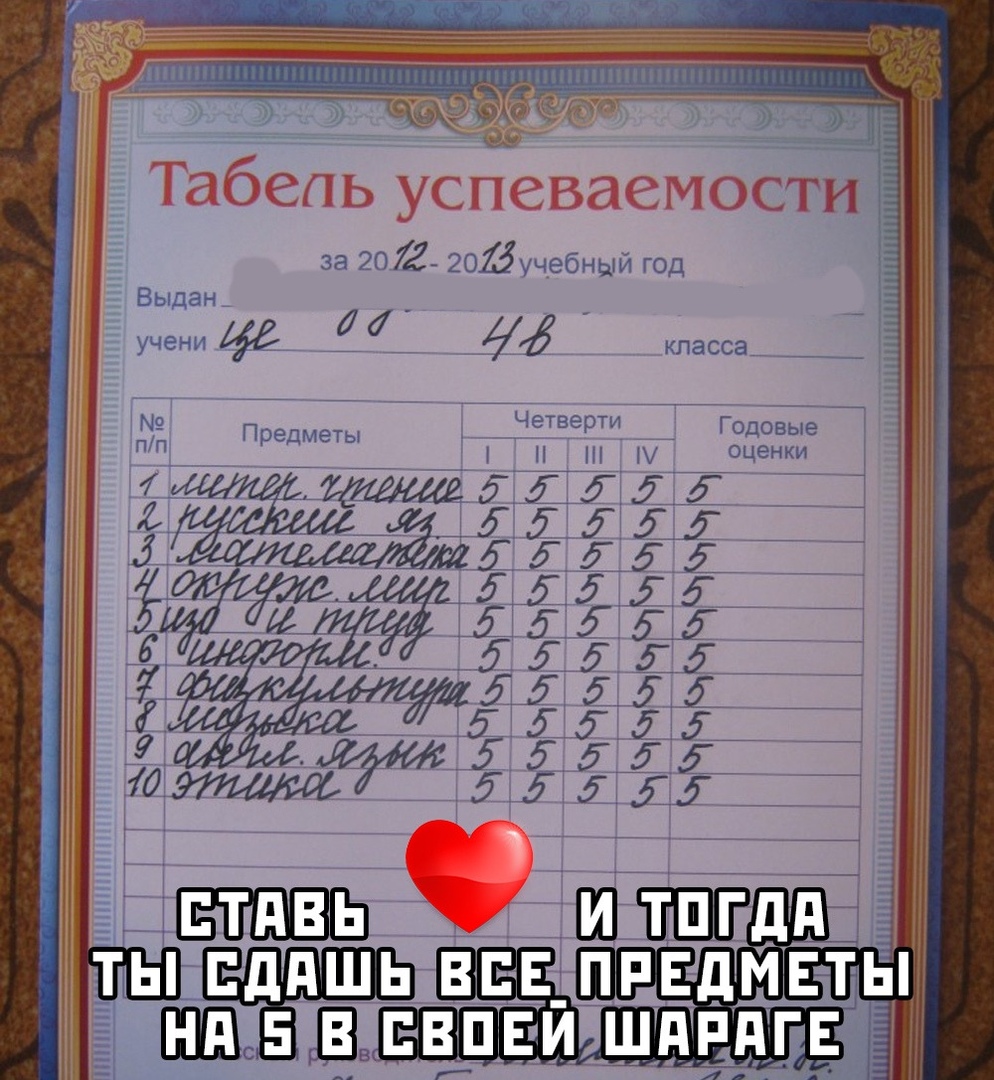 Табель успеваемости
за 2012 - 2013 учебный год
Выдан
ученице 4в класса
№ п/п Предметы Четверти Годовые оценки
I II III IV
1 литер. чтение 5 5 5 5 5
2 русский яз 5 5 5 5 5
3 математика 5 5 5 5 5
4 окруж. мир 5 5 5 5 5
5 изо и труд 5 5 5 5 5
6 информ. 5 5 5 5 5
7 физкультура 5 5 5 5 5
8 музыка 5 5 5 5 5
9 англ. язык 5 5 5 5 5
10 этика 5 5 5 5 5
СТАВЬ И ТОГДА
ТЫ СДАШЬ ВСЕ ПРЕДМЕТЫ
НА 5 В СВОЕЙ ШАРАГЕ